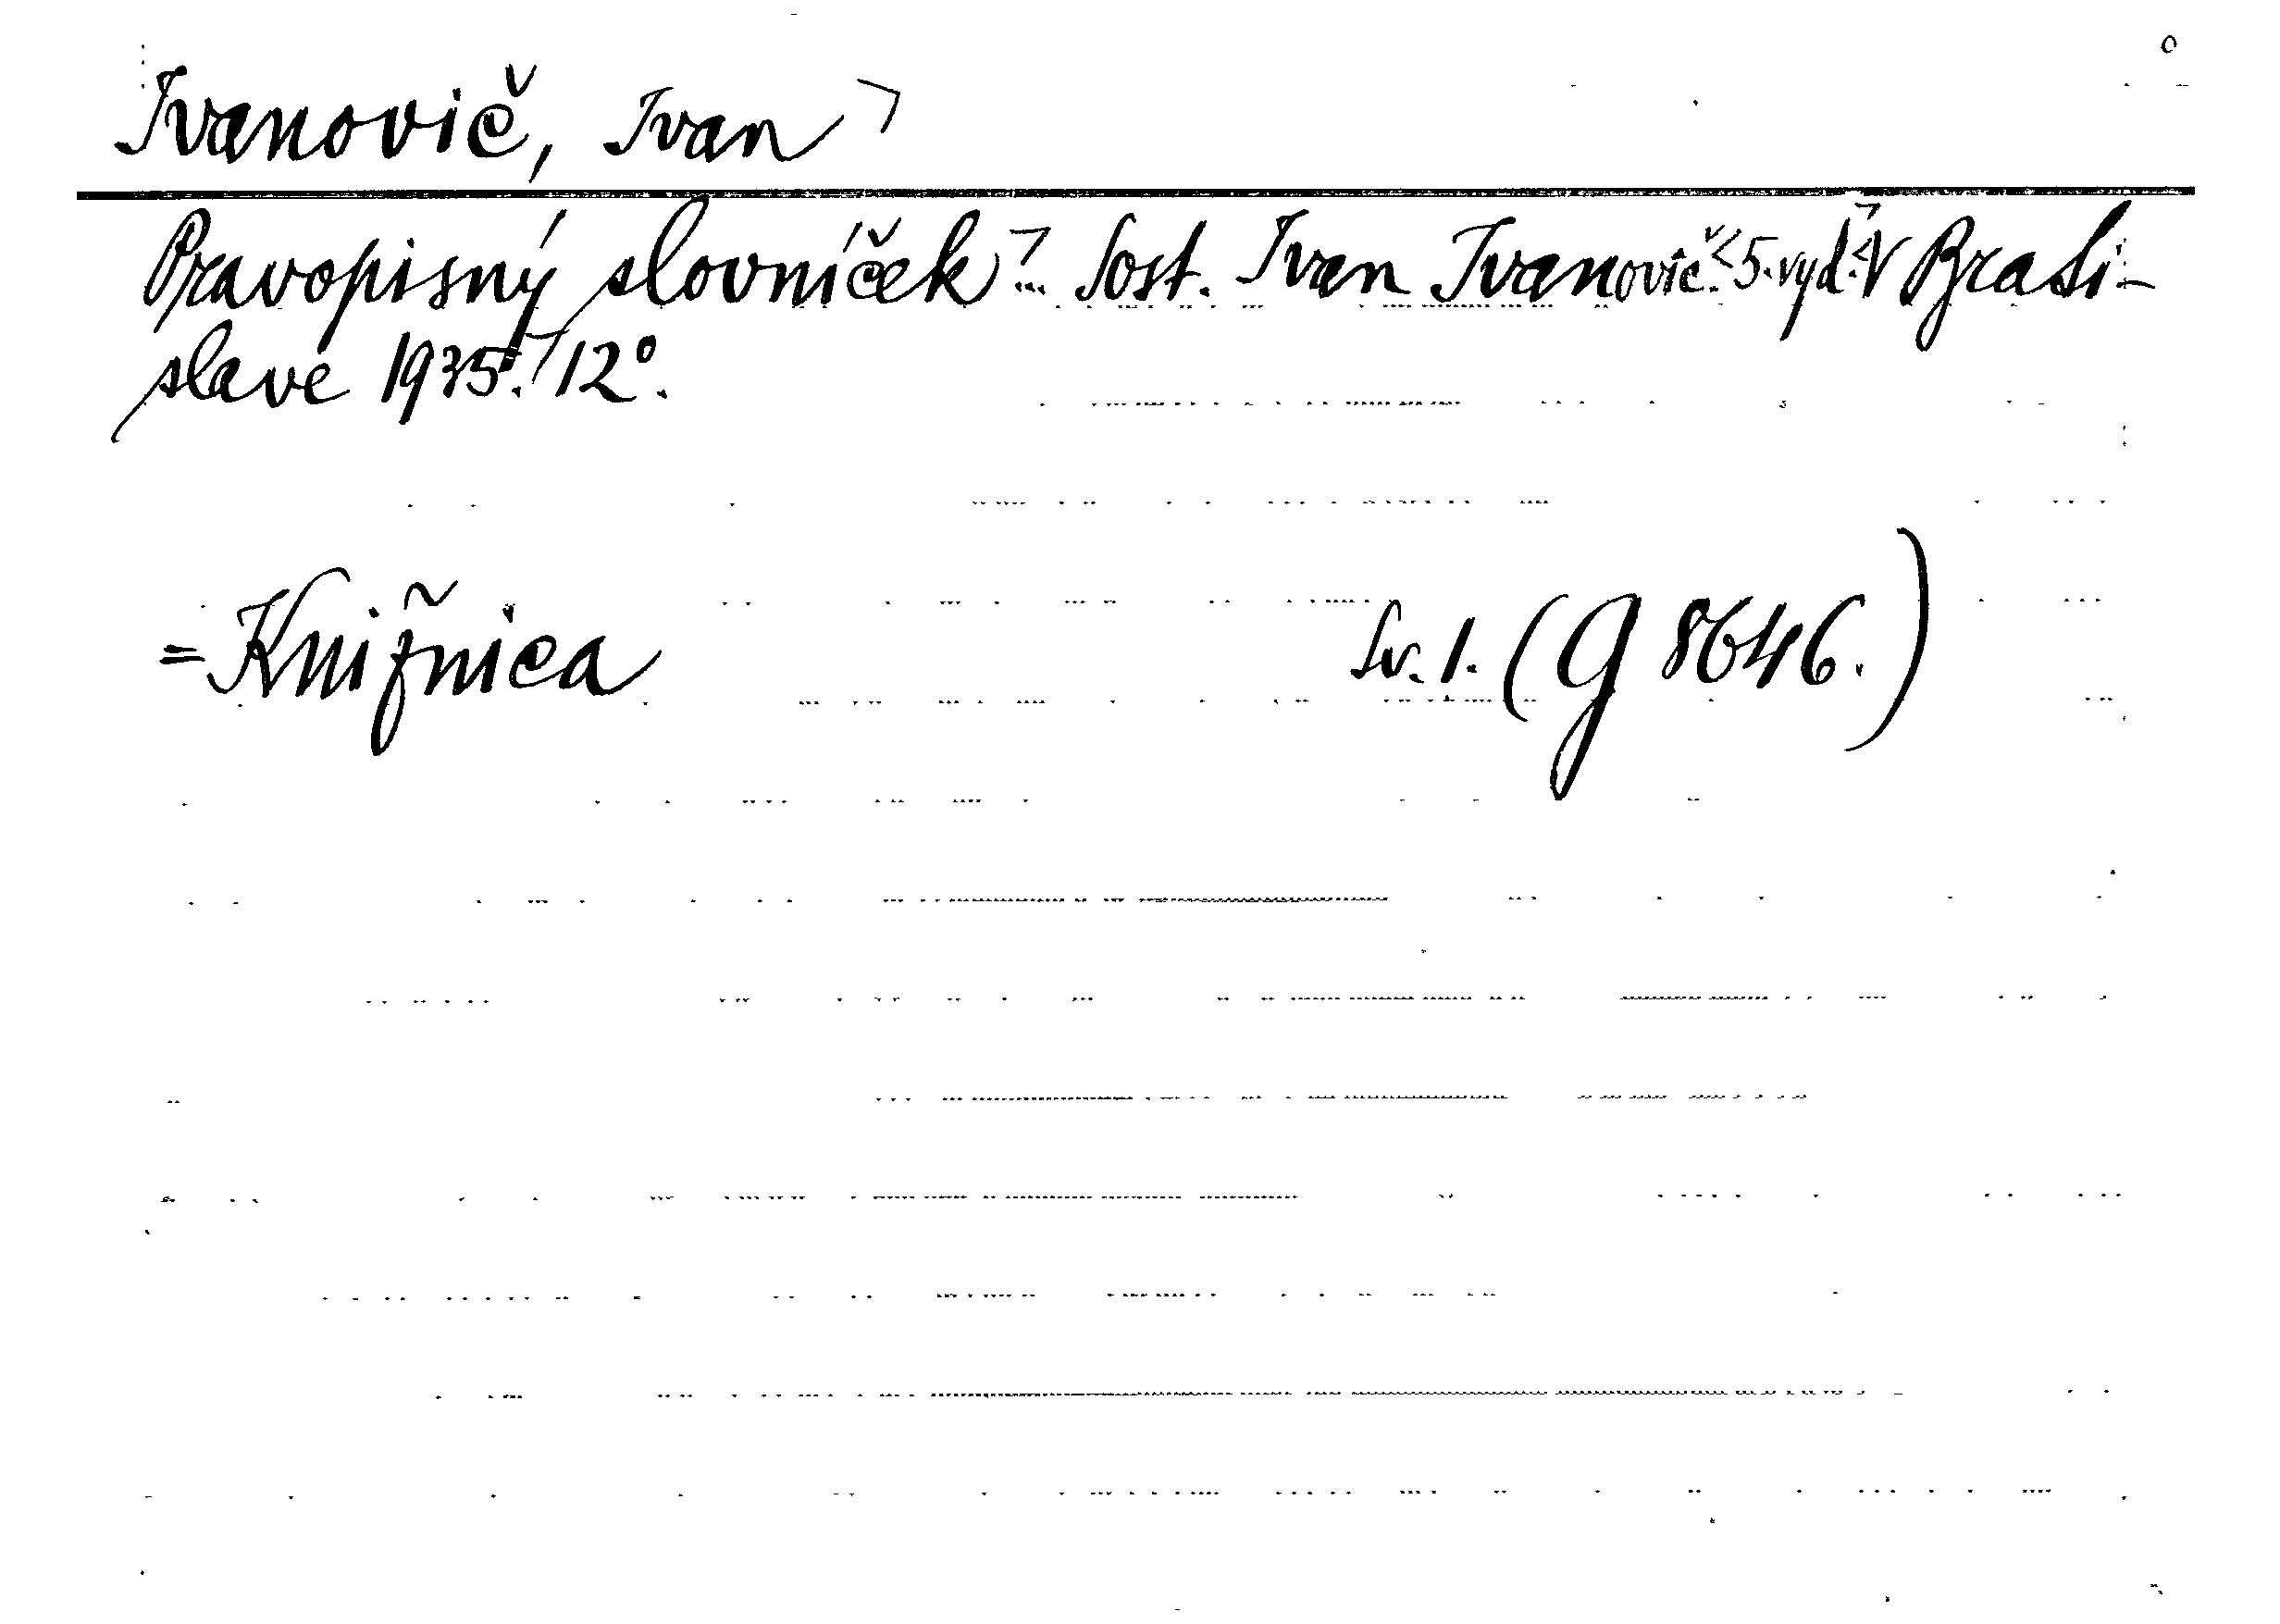 Ivanovič, Ivan ㄱ
Pravopisný slovníček ... Sost. Ivan Ivanovič. < 5. vyd. > V Brati-
slave 1935. 12°.
= Knižnica Sv. 1. (G 8646.)